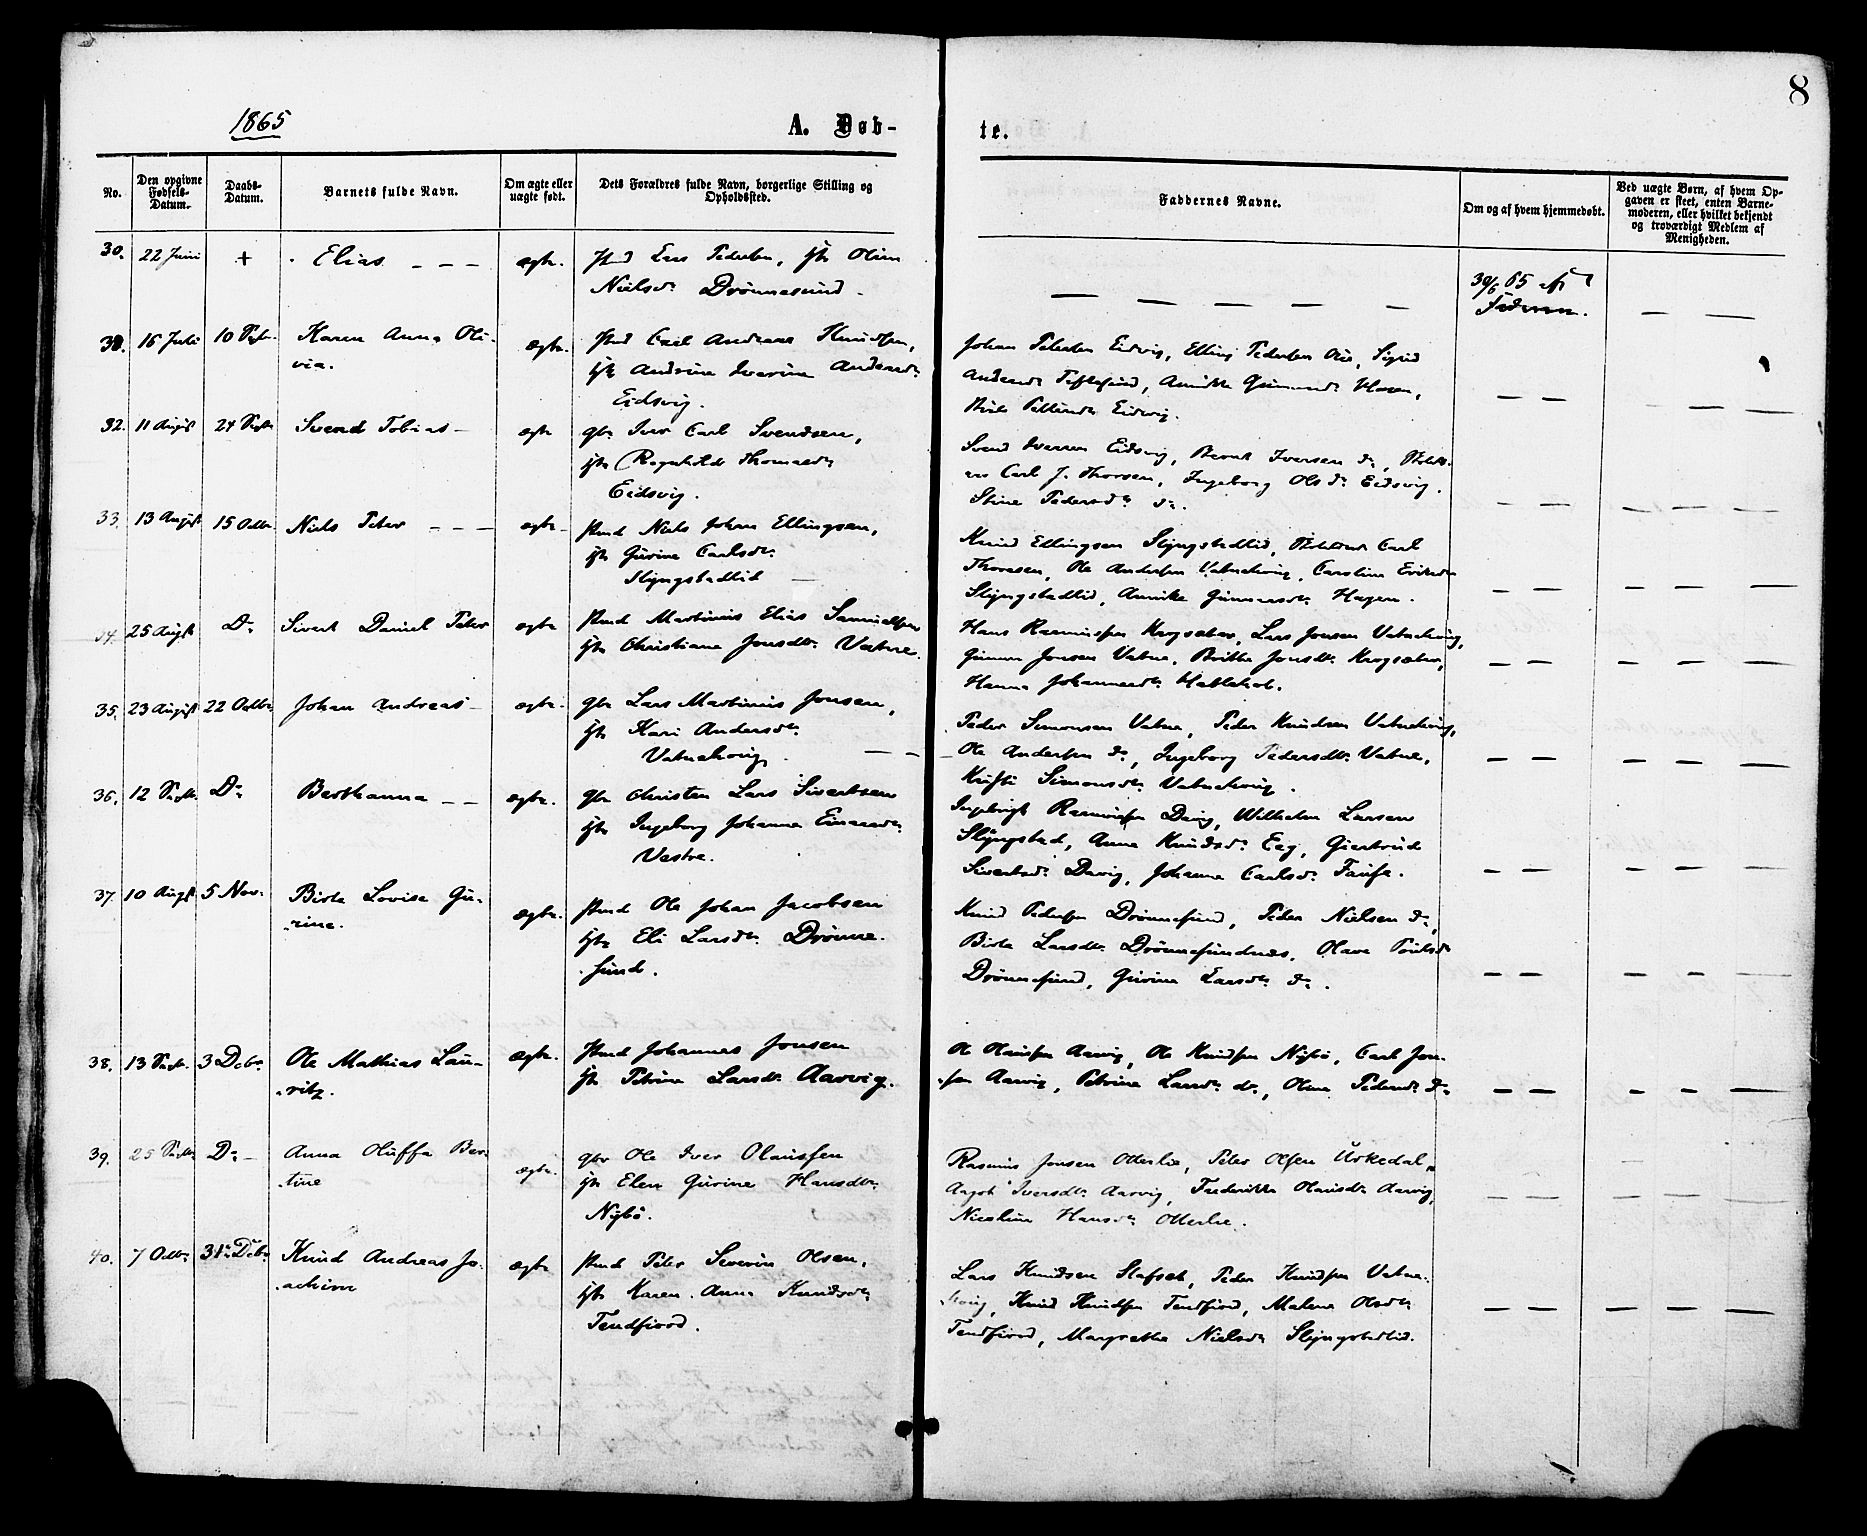 8
1865
A. Døb-
te.
No.
Den opgivne Fødsels-Datum.
Daabs-Datum.
Barnets fulde Navn.
Om ægte eller uægte født.
Dets Forældres fulde Navn, borgerlige Stilling og Opholdssted.
Faddernes Navne.
Om og af hvem hjemmedøbt.
Ved uægte Børn, af hvem Opgaven er skeet, enten Barnemoderen, eller hvilket bekjendt og troværdigt Medlem af Menigheden.
30. 22 Juni + Elias - - - ægte. Lars Pedersen, Oline
Nielsdr Drönnesund.
30/6 65 af
Faderen.
16 Juli 10 Septr. Karen Anna Oli-
via.
ægte. Carl Andreas Knudsen,
Andrine Iverine Andersdr
Eidsvig.
Johan Petersen Eidvig, Elling Pedersen, Sigrid
Andersdr, Annikke Gunnarsdr Hagen,
Eidsvig.
32. 11 August 24 Septr Svend Tobias - ægte gbr. Iver Carl Svendsen,
Ragnhilde Thomasdr
Eidsvig.
Svend Iversen Eidsvig, Bernt Iversen do,
Carl J. Thorsen, Ingeborg Olsdr Eidsvig.
Stine Pedersdr do.
33. 13 August 15 Octbr Niels Peter - - - ægte - Niels Johan Ellingsen,
Gurine Carlsdr
Slyngstadlid
Knud Ellingsen Slyngstadlid, Carl
Thoresen, Ole Andersen Vatnehvig, Caroline Eriksdr
Slyngstadlid, Annike Gunnarsdr Hagen.
34. 25 Augst Do Sivert Daniel Peter ægte Martinus Elias Samuelsen
Christiane Jonsdr. Vatne.
Hans Rasmussen Krogsæter, Lars Jonsen Vatnehvig,
Gunnar Jonsen Vatne, Britthe Jonsdr. Krogsæter,
Hanna Johannesdr.
35. 23 August 22 Octbr. Johan Andreas - ægte. gbr Lars Martinus Jonsen,
Kari Andersdr.
Vatnehvig.
Peder Simonsen Vatne, Peder Knudsen Vatnehvig,
Ole Andersen do, Ingeborg Pedersdr. Vatne,
Simonsdr. Vatnehvig.
36. 12 Septr. Do Berthanna - - ægte. gbr Christen Lars Sivertsen
Ingeborg Johanna Einarsdr.
Vestre.
Ingebrigt Rasmussen Davig, Wilhelm Larsen
Slyngstad, Anne Knudsdr. Eeg, Giertrude
Sivertsdr. Davig, Johanna Carlsdr.
37. 10 Augst 5 Nov. Birte Lovise Gu-
rine.
ægte. Ole Johan Jacobsen
Eli Larsdr. Drönne-
sund.
Knud Pedersen Drönnesund, Peder Nielsen do,
Birte Larsdr. Drönnesundnes, Olave
Drönnesund, Gurine Larsdr. do.
38. 13 Septr. 3 Decbr. Ole Mathias Lau-
ritz.
ægte. Johannes Jonsen
Petrine Larsdr. Aarvig.
Ole Olausen Aarvig, Ole Knudsen Nybö, Carl Jon-
sen Aarvig, Petrine Larsdr. do, Oline Pedersdr. do
39. 25 Septr. Do - Anna Oluffa Ber-
tine
ægte. gbr Ole Iver Olaussen
Elen Gurine Hansdr.
Nybö.
Rasmus Jonsen Otterlie, Peter Olsen Urkedal,
Iversdr. Aarvig, Frederikke Olausdr. Aarvig,
Nicoline Hansdr Otterlie.
40. 7 Octbr 31 Decbr Knud Andreas Jo-
achim
ægte Peter Severin Olsen,
Karen Anna Knudsdr
Tendfiord.
Lars Knudsen Slafset, Peder Knudsen Vatne-
hvig, Knud Knudsen Tendfiord, Malene Olsdr
Tendfiord, Margrethe Nielsdr Slyngstadlid.